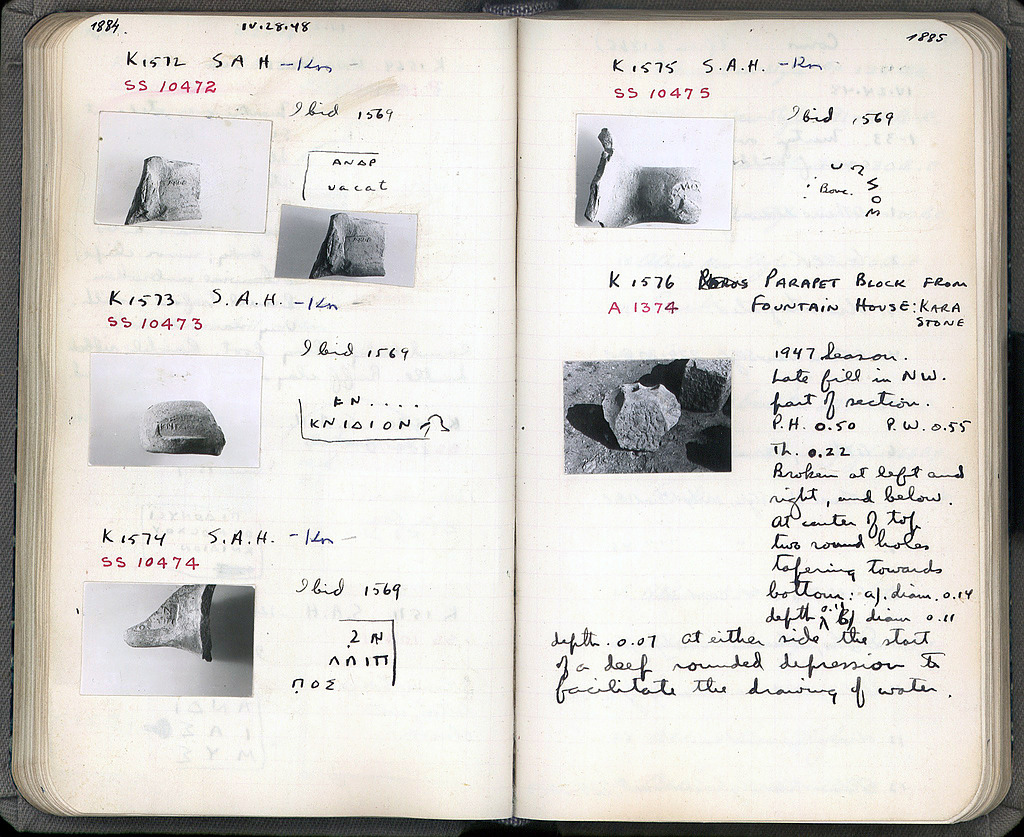 1884.
IV.28.48
K 1572 S A H - Kn
SS 10472
Ibid 1569
ΑΝΔΡ
vacat
K 1573 S.A.H. - Kn -
SS 10473
Ibid 1569
ΕΝ....
ΚΝΙΔΙΟΝ
K 1574 S.A.H. - Kn -
SS 10474
Ibid 1569
ΠΟΣ
1885
K 1575 S.A.H. - Kn
SS 10475
Ibid 1569
Bouc.
K 1576 PARAPET BLOCK FROM
A 1374 FOUNTAIN HOUSE: KARA
STONE
1947 Season.
Late fill in NW.
part of section.
P.H. 0.50 P.W. 0.55
Th. 0.22
Broken at left and
right, and below.
At center of top
two round holes
tapering towards
bottom: a) diam. 0.14
depth 0.11 B) diam 0.11
depth. 0.07 at either side the start
of a deep rounded depression to
facilitate the drawing of water.